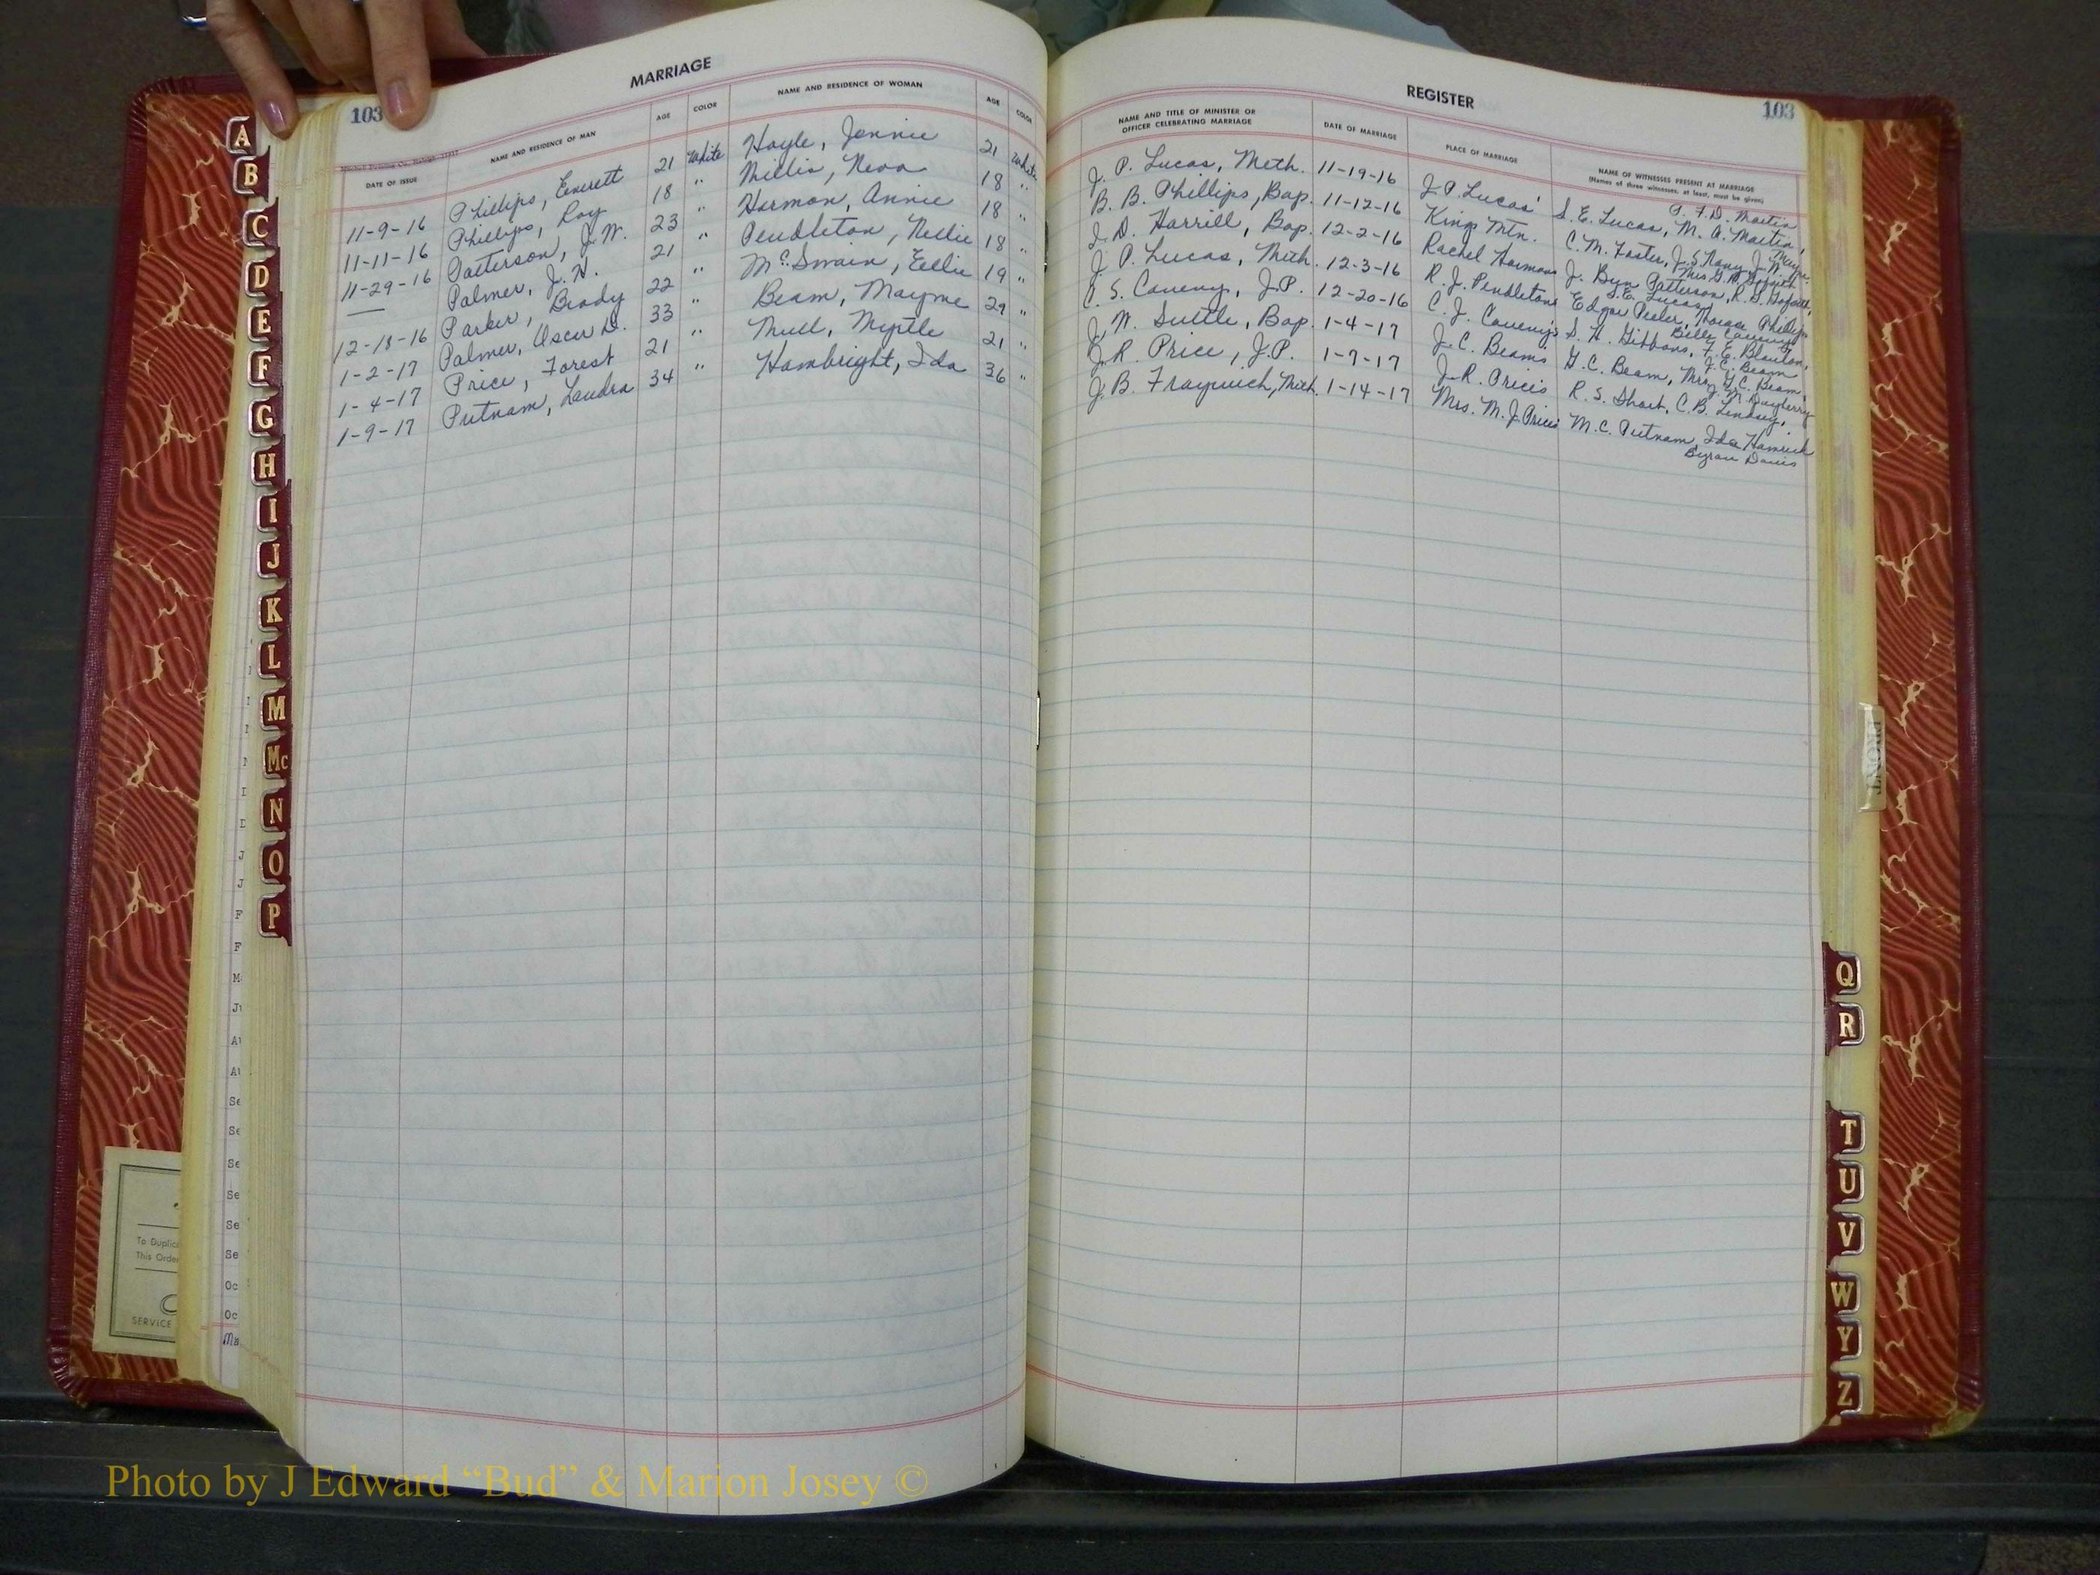 MARRIAGE
103
DATE OF ISSUE NAME AND RESIDENCE OF MAN AGE COLOR NAME AND RESIDENCE OF WOMAN AGE COLOR
11-9-16 Phillips, Everett 21 White Hoyle, Jennie 21 White
11-11-16 Phillips, Roy 18 " Millis, Neva 18 "
11-29-16 Patterson, J. W. 23 " Harmon, Annie 18 "
— Palmer, J. H. 21 " Pendleton, Nellie 18 "
12-18-16 Parker, Brady 22 " McSwain, 19 "
1-2-17 Palmer, Oscar D. 33 " Beam, Mayme 29 "
1-4-17 Price, Forest 21 " Mull, Myrtle 21 "
1-9-17 Putnam, Landra 34 " Hambright, Ida 36 "
REGISTER
103
NAME AND TITLE OF MINISTER OR
OFFICER CELEBRATING MARRIAGE
DATE OF MARRIAGE PLACE OF MARRIAGE
NAME OF WITNESSES PRESENT AT MARRIAGE
(Names of three witnesses, at least, must be given)
J. P. Lucas, Meth. 11-19-16 J. P. Lucas' S. E. Lucas, M. A. Martin, D. Martin
B. B. Phillips, Bap. 11-12-16 Kings Mtn. C. M. Foster, J. S. Nany, J. W.
I. D. Harrill, Bap. 12-2-16 Rachel Harmons J. Patterson, R. S. Goforth, Mrs.
J. P. Lucas, Meth. 12-3-16 R. J. Pendletons Edgar Peeler, Horace Phillips, S. E. Lucas
C. S. Caveny, J.P. 12-20-16 C. J. Caveny's S. H. Gibbons, F. E. Blanton, Caveny
J. W. Suttle, Bap. 1-4-17 J. C. Beams G. C. Beam, Mrs. G. C. Beam, J. C. Beam
J. R. Price, J.P. 1-7-17 J. R. Price's R. S. Short, C. B. Lindsay,
J. B. Meth. 1-14-17 Mrs. M. J. Price's M. C. Putnam, Ida Hamrick
Byran Davis
A
B
C
D
E
F
G
H
I
J
K
L
M
Mc
N
O
P
Q
R
T
U
V
W
Y
Z
FRONT
To Duplic
This Order
SERVICE
Photo by J Edward “Bud” & Marion Josey ©